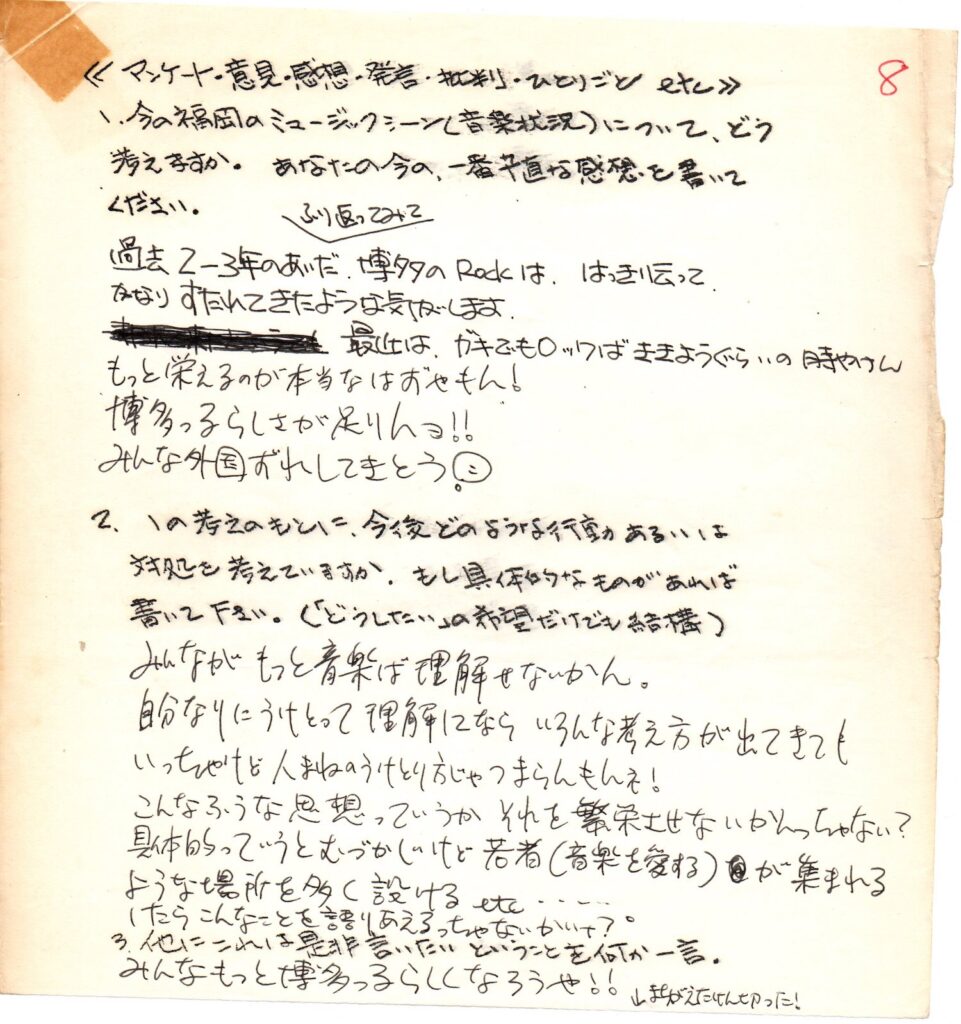 8
≪アンケート・意見・感想・発言・批判・ひとりごと etc≫
1、今の福岡のミュージックシーン(音楽状況)について、どう
考えますか。 あなたの今の、一番卒直な感想を書いて
ください。
ふり返ってみて
過去2-3年のあいだ、博多のRockは、はっきり云って
かなりすたれてきたような気がします。
最近は、ガキでもロックばききようぐらいの時やけん
もっと栄えるのが本当なはずやもん!
博多っ子らしさが足りんヨ!!
みんな外国ずれしてきとう
2、1の考えのもとに、今後どのような行動あるいは
対処を考えていますか、もし具体的なものがあれば
書いて下さい。(「どうしたい」の希望だけでも結構)
みんながもっと音楽ば理解せないかん。
自分なりにうけとって理解になら いろんな考え方が出てきても
いっちゃけど 人まねのうけとり方じゃつまらんもんネ!
こんなふうな思想っていうか それを繁栄させないかんっちゃない?
具体的っていうとむづかしいけど 若者(音楽を愛する)が集まれる
ような場所を多く設ける etc ‥‥‥
したらこんなことを語りあえるっちゃないかいナ?
3、他にこれは是非言いたいということを何か一言。
みんなもっと博多っ子らしくなろうや!!
↓まちがえたけん切った!